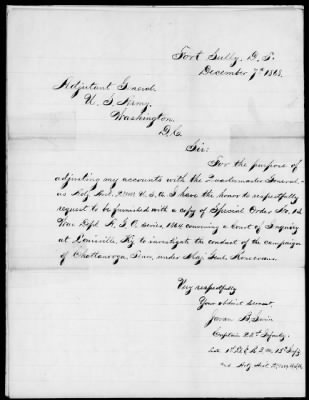 Fort Sully, D. T.
December 7th 1868.
Adjutant General
U. S. Army.
Washington.
D. C.
Sir:
For the purpose of
adjusting my accounts with the Quartermaster General
as Actg. Asst. U. S. A. I have the honor to respectfully
request to be furnished with a copy of Special Order No.
War Dept. A. G. O. Series, 1864 convening a Court of Inquiry
at Louisville, Ky to investigate the conduct of the campaign
of Chattanooga, Tenn, under Maj. Genl. Rosecrans.
Very respectfully
Your obedient servant,
Captain 22d Infantry.
Late 1st Lt &
and Actg Asst